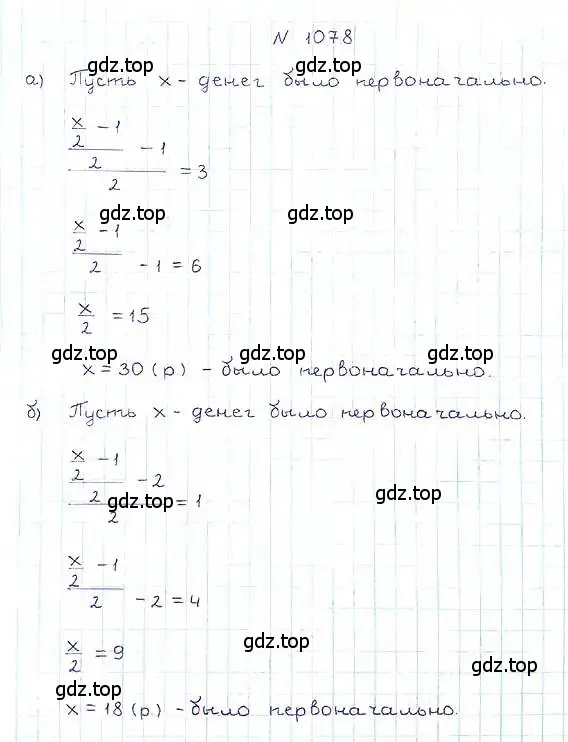 N 1078
gdz.top gdz.top
а) Пусть x - денег было первоначально.
x/2 - 1
2 - 1
2 = 3
gdz.top gdz.top
x/2 - 1
2 - 1 = 6
x/2 = 15
gdz.top gdz.top gdz.top
x = 30 (р) - было первоначально.
б) Пусть x - денег было первоначально.
x/2 - 1
2 - 2
2 = 1
gdz.top gdz.top
x/2 - 1
2 - 2 = 4
x/2 = 9
gdz.top gdz.top
gdz.top
x = 18 (р) - было первоначально.